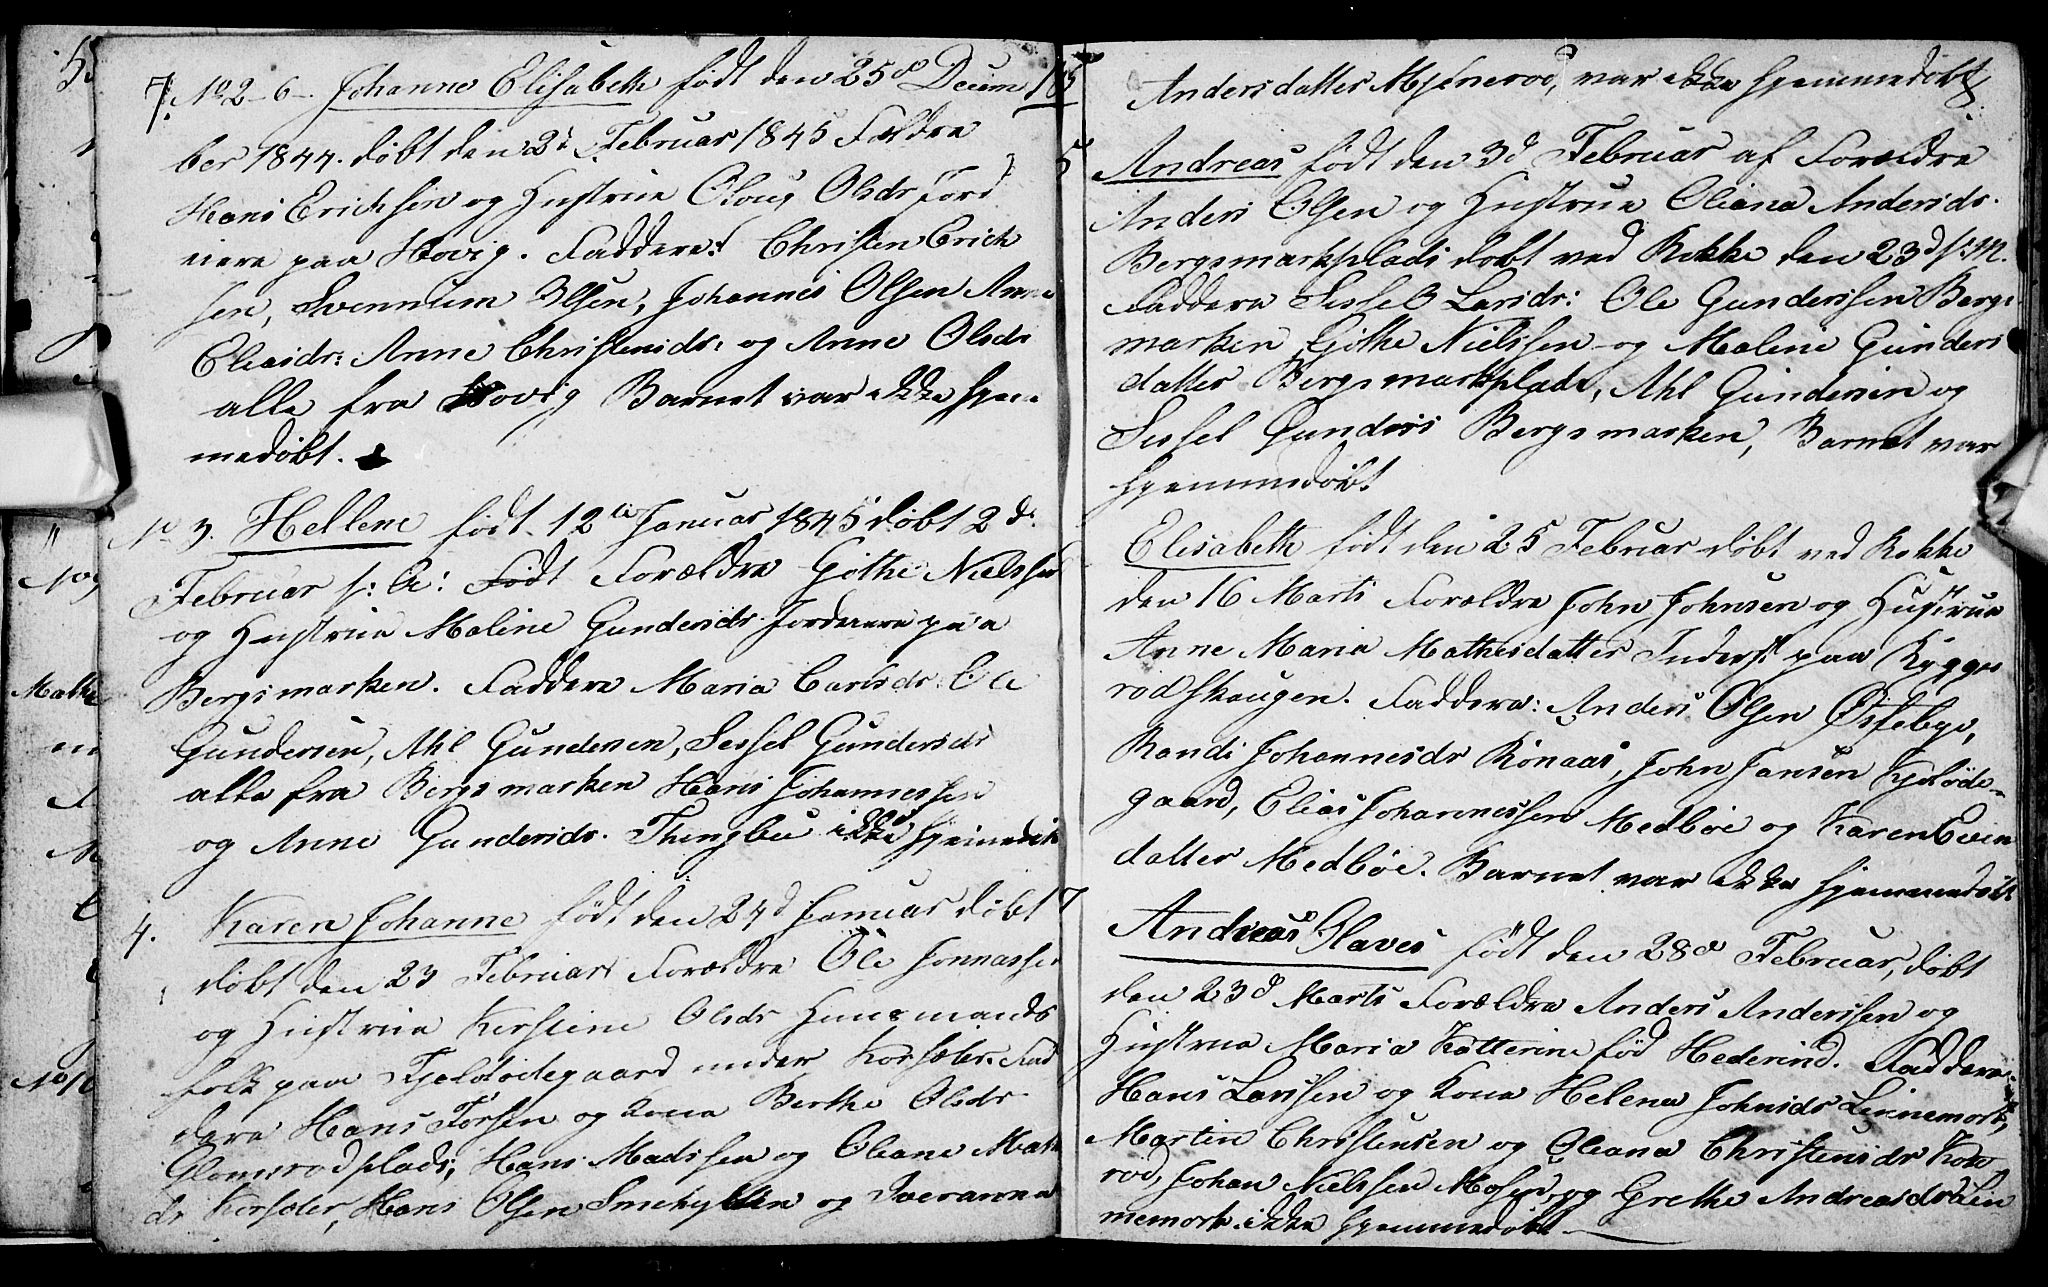 7. No 2-6-. Johanne Elisabeth født den 25de Decem
ber 1844. døbt den 2d Februar 1845 Fældre
Hans Erichsen og Hustrue Oloug Olsdr Jord
eiere paa Hovig. Faddere: Christen Erich
sen, Svennum Olsen, Johannes Olsen Anne
Eliasdr: Anne Christensdr: og Anne Olsdr
alle fra Hovig Barnet var ikke hjem
medøbt.
No 3. Hellene født 12te Januar 1845 døbt 2d.
Februar s: A: Født Forældre Gøthe Nielssen
og Hustrue Maline Gundersdr. Jordeiere paa
Bergsmarken. Faddere Maria Carlsdr: Ole
Gundersen, Ahl Gundersen, Sessel Gundersdr
alle fra Bergsmarken Hans Johannessen
og Anne Gundersdr. Thingbu ikke hjemmedøbt
4. Karen Johanne født den 24d Januar døbt
døbt den 23 Februar Forældre Ole Jonnassen
og Hustrue Kerstine Olsdr Huusmands
folk paa Kjølødegaard under Korsæter. Fad
dere Hans Torsen og Kone Berthe Olsdr.
Glomsrødplads, Hans Madssen og Oleane Math
dr Korsæter, Hans Olsen Smehytten og
Andersdatter Mjønerød, var ikke hjemmedøbt
5 Andreas født den 3d Februar af Forældre
Anders Olsen og Hustrue Oliana Andersdr.
Bergsmarkplads døbt ved Kirke den 23d s: M.
Faddere Sessel Larsdr: Ole Gunderssen Bergs
marken Gøthe Nielssen og Malene Gunders
datter Bergsmarkplads, Ahl Gundersen og
Sessel Gunders Bergsmarken, Barnet var
hjemmedøbt
Elisabeth født den 25 Februar døbt ved Kirke
den 16 Marts Forældre John Johnsen og Hustrue
Anne Maria Mathesdatter Inderst paa Rygge
rødskaugen. Faddere: Anders Olsen Østebye,
Randi Johannesdr Rønaas, John Jansen Kjøløde-
gaard, Elias Johannessen Medbøe og Karen Even
datter Medbøe. Barnet var ikke hjemmedøbt
7 Andreas Olaves født den 28de Februar, døbt
den 23d Marts Forældre Anders Anderssen og
Hustrue Maria Katterine fød Hederind. Faddere
Hans Larssen og Kone Helena Johnsdr Linnemork,
Martin Christensen og Oleana Christensdr Kole
rød, Johan Nielssen Mosen, og Grethe Andreasdr Lin
nemork ikke hjemmedøbt